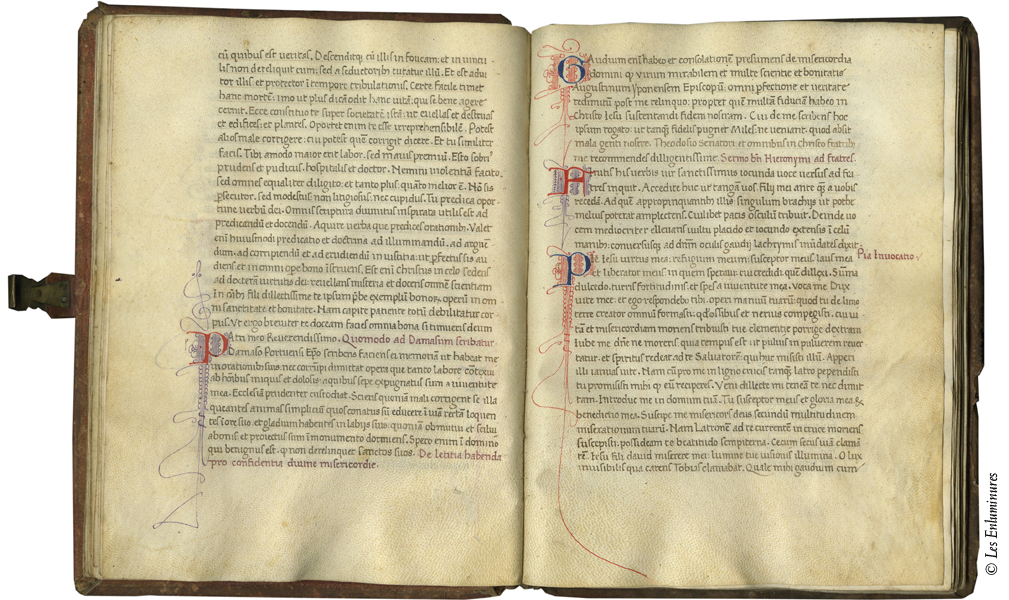 cū quibus est veritas. Descenditq; cū illis in foueam: et in vincu
lis non dereliquit eum: sed a seductorib; tutatur illū. Et est adiu
tor illis: et protector ī tempore tribulationis. Certe facile timet
hanc mortē: imo ut plus dicā odit hanc uitā: qui se bene agere
cernit. Ecce constituo te super societatē istā: ut euellas et destruas
et edifices et plantes. Oportet enim te esse irreprehensibilē. Potest
alios male corrigere: cui potest quis corrigit dicere. Et tu similiter
facis. Tibi amodo maior erit labor: sed maius premiū. Esto sobri
prudens et pudicus. hospitalis et doctor. Nemini violentiā facito
sed omnes equaliter diligito: et tanto plus quāto melior ē. Nō sis
psecutor. sed modestus non litigiosus: nec cupidus. Tu predica opor
tune verbū dei. Omnis scriptura diuinitus inspirata utilis est ad
predicandū et docendū. Aquire verba que predices orationib;. Valet
eni huiusmodi predicatio et doctrina ad illuminandū. ad arguē
dum: ad corripiendū et ad erudiendū in iusticia: ut pfectus sis au
diens et in omni ope bono īstructus. Est eni Christus in celo sedens
ad dexterā uirtutis dei: reuellans misteria et docens omnē scientiam
In oīb; fili dillectissime te ipsum pbe exemplū bonor. operū in om
ni sanctitate et bonitate. Nam capite patiente totū debilitatur cor
pus. Ut ergo breuiter te doceam: facies omnia bona si timueris deum
Patri meo Reuerendissimo. Quomodo ad Damasum scribatur
Damaso Portuensi Ego scribens faciens memoriā ut habeat me
in orationibus suis: nec corrūpi dimittat opera que tanto labore cōtexui
ab hoībus iniquis et dolosis: aquibus sepe expugnatus sum a iuuentute
mea. Ecclesiā prudenter custodiat. Sciens quoniā mali corrigent se illa
queantes animas simpliciū: quos conatus sū educere ī uiā rectā loquen
tes iore suo, et gladium habentes in labijs suis: quoniā obmutui et silui
abonis et proiectus sum ī monumento dormiens. Spero enim ī domino
qui benignus est. q non derelinquet sanctos suos. De letitia habenda
pro confidentia diuine misericordie.
Gaudium enī habeo et consolationē presumens de misericordia
domini q virum mirabilem et multe scientie et bonitatis
Augustinum Yponensem Episcopū: omni pfectione et ueritate
redimitū post me relinquo: propter quē multā fiduciam habeo in
Christo Iesu sustentandi fidem nostram. Cui de me scribens hoc
ipsum rogato: ut tanq; fidelis pugnet Miles: ne ueniant quod absit
mala genti nostre. Theodosio Senatori: et omnibus in Christo fratrib;
me recommendes dilligentissime. Sermo bti Hieronymi ad fratres.
Finitis his verbis uir sanctissimus iocunda uoce versus ad fra
tres inquit. Accedite huc ut tangā uos filij mei ante q; a uobis
recedā. Ad quē appropinquantib; illis: singulum brachijs ut potue
melius poterat amplectens. Cuilibet pacis osculū tribuit. Deinde uo
cem mediocriter elleuans: uultu placido et iocundo extensis ī celū
manib;: conuersusq; ad dnm̄: oculis gaudij lachrymis inūdatis dixit
Pie Iesu virtus mea: refugium meum: susceptor meus: laus mea Pia Inuocatio
et liberator meus in quem speraui: cui credidi: quē dillexi. Sūma
dulcedo. turris fortitudinis. et spes a iuuentute mea. Voca me Dux
uite mee: et ego respondebo tibi. opera manuū tuarū: quod tu de limo
terre creator omniū formasti: qd ossibus et neruis compegisti: cui ui
tā et misericordiam moriens tribuisti: tue clementie porrige dextram
Iube me dnē: ne moreris. qua tempus est ut puluis in puluerem reuer
tatur. et spiritus redeat ad te Saluatorē: qui huc misisti illū. Apperi
illi ianuas uite. Nam cū pro me in ligno crucis tanq; latro pependisti
tu promisisti mihi q eū reciperes. Veni dillecte mi: tenea te nec dimit
tam. Introduc me in domum tuā. Tu susceptor meus et gloria mea &
benedictio mea. Suscipe me misericors deus secundū multitudinem
miserationum tuarū. Nam Latronē ad te currentē in cruce moriens
suscepisti. possideam te beatitudo sempiterna. Cecum secus uiā clamā
tē: Iesu fili dauid miserere mei: lumine tue visionis illumina. O lux
inuisibilis qua carens Tobias clamabat. Quale mihi gaudium cum
© Les Enluminures